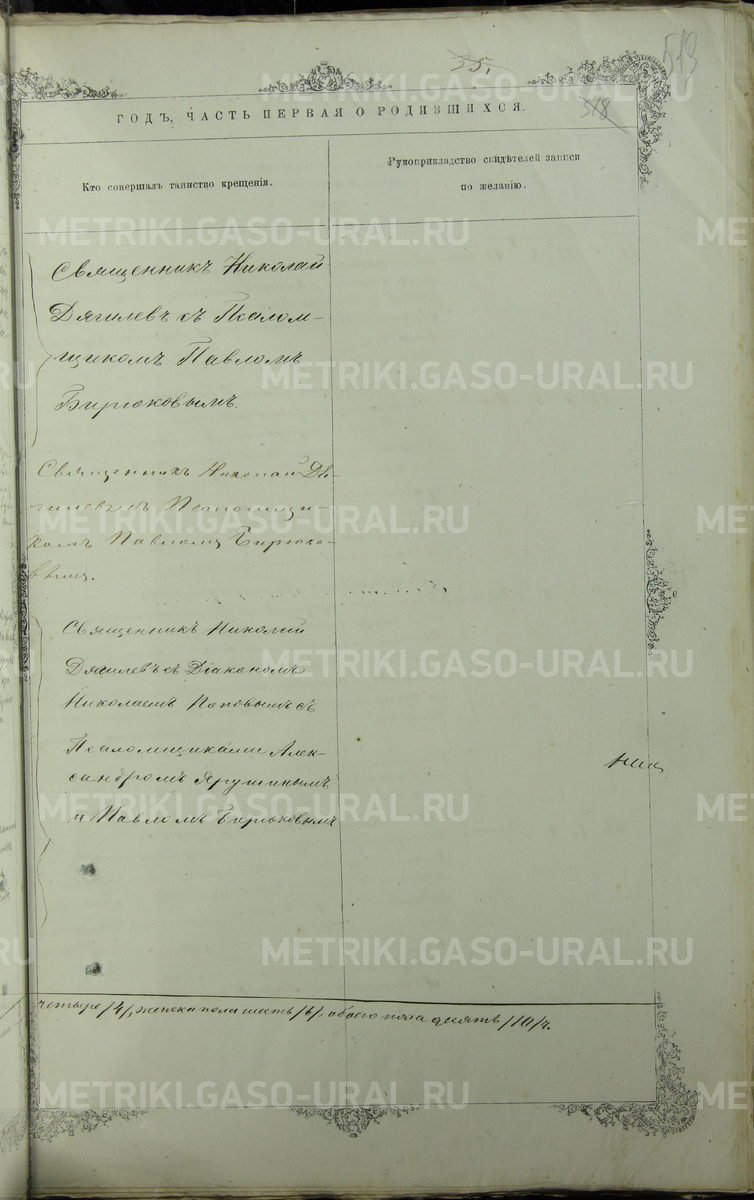 55.
513
518
ГОДЪ, ЧАСТЬ ПЕРВАЯ О РОДИВШИХСЯ.
Кто совершалъ таинство крещенія.
Рукоприкладство свидѣтелей записи
по желанію.
Священникъ Николай
Дягилевъ съ Псалом-
щикомъ Павломъ
Бирюковымъ.
Священникъ Николай Дя-
гилевъ съ Псаломщи-
комъ Павломъ Бирюко-
вымъ.
Священникъ Николай
Дягилевъ съ Діакономъ
Николаемъ Поповымъ съ
Псаломщиками Алек-
сандромъ Ярушинымъ
и Павломъ Бирюковымъ
четыре /4/, женска пола шесть /6/, обоего пола десять /10/ ч.
METRIKI.GASO-URAL.RU